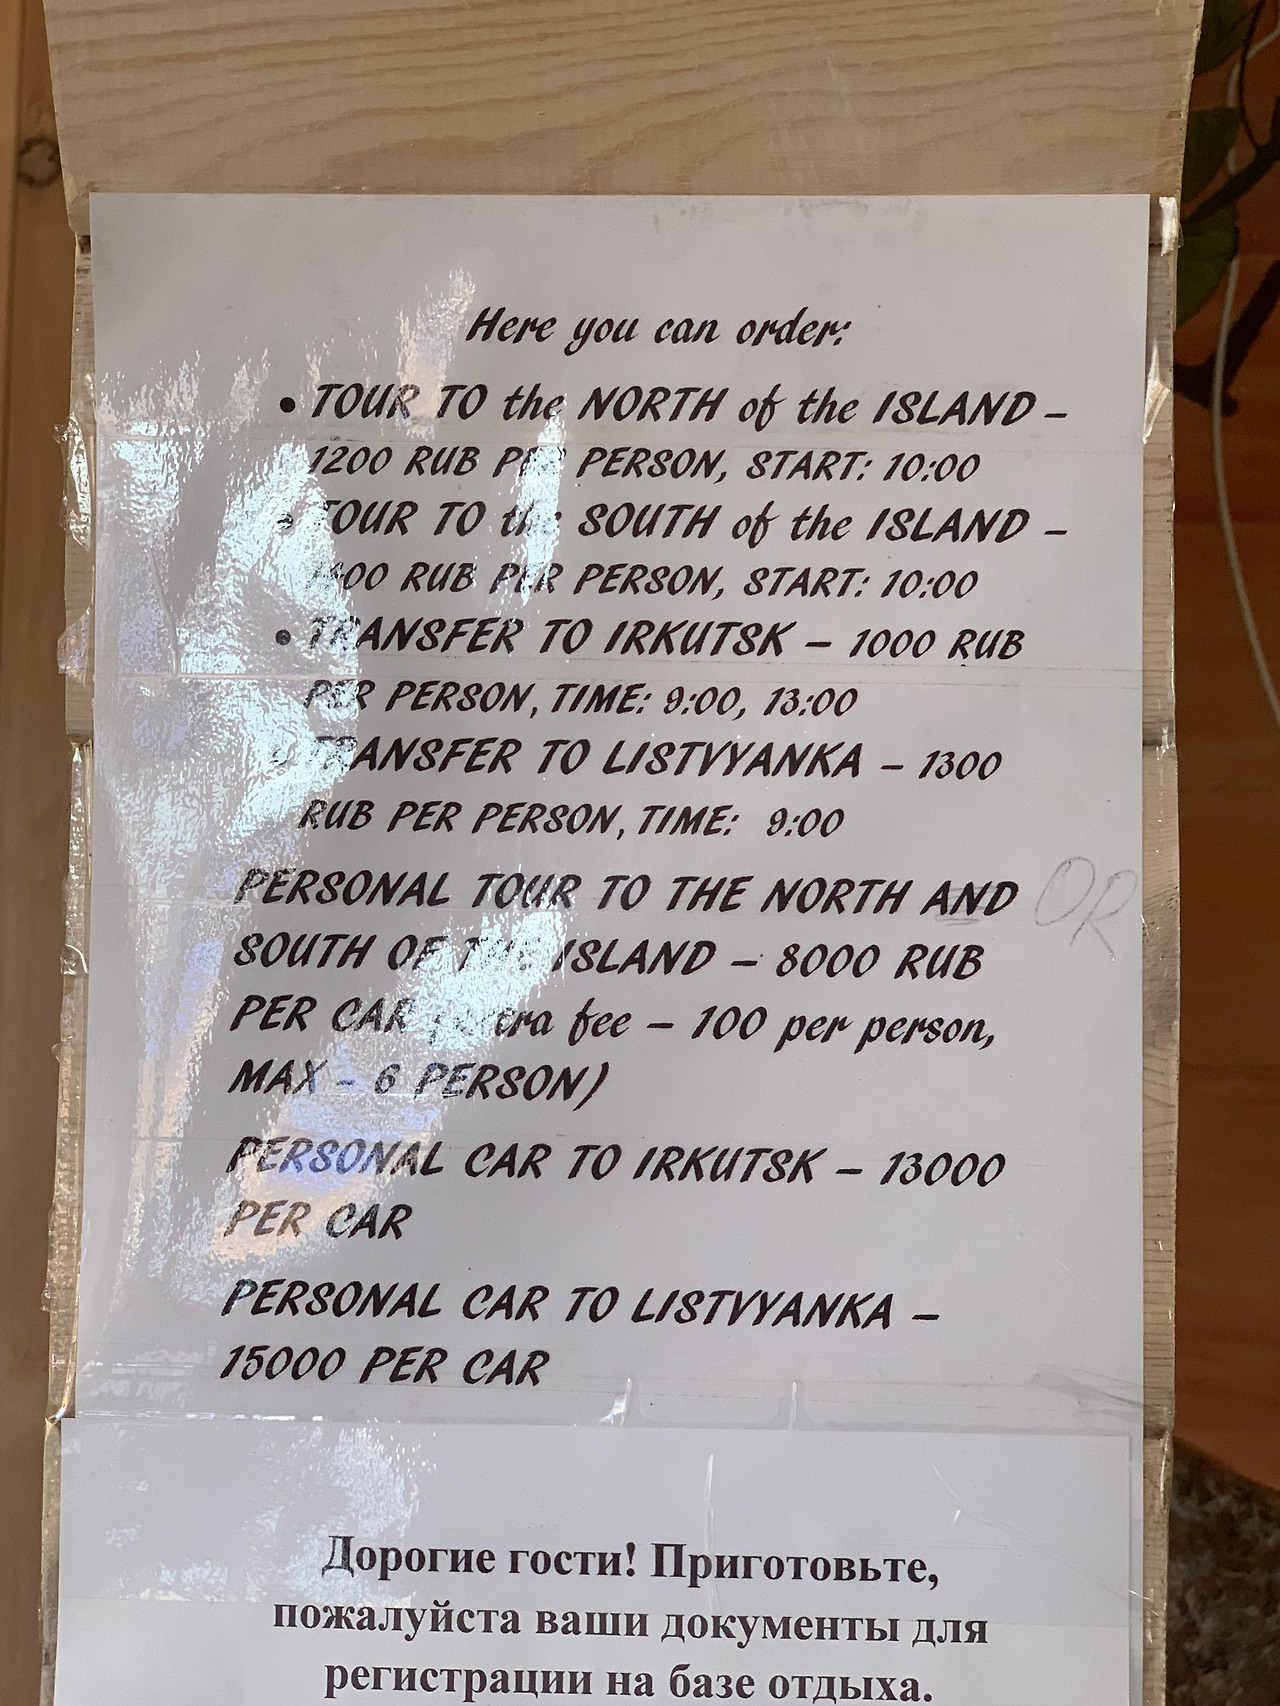 Here you can order:
• TOUR TO the NORTH of the ISLAND –
1200 RUB PER PERSON, START: 10:00
• TOUR TO the SOUTH of the ISLAND –
RUB PER PERSON, START: 10:00
• TRANSFER TO IRKUTSK – 1000 RUB
PER PERSON, TIME: 9:00, 13:00
• TRANSFER TO LISTVYANKA – 1300
RUB PER PERSON, TIME: 9:00
PERSONAL TOUR TO THE NORTH AND OR
SOUTH OF THE ISLAND – 8000 RUB
PER CAR (extra fee – 100 per person,
MAX – 6 PERSON)
PERSONAL CAR TO IRKUTSK – 13000
PER CAR
PERSONAL CAR TO LISTVYANKA –
15000 PER CAR
Дорогие гости! Приготовьте,
пожалуйста ваши документы для
регистрации на базе отдыха.